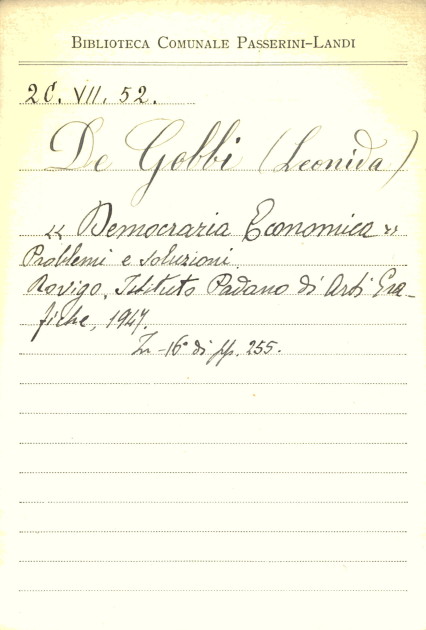 BIBLIOTECA COMUNALE PASSERINI-LANDI
2C. VII. 52.
De Gobbi (Leonida)
« Democrazia Economica »
Problemi e soluzioni
Rovigo, Istituto Padano di Arti Gra-
fiche, 1947.
In -16° di pp. 255.